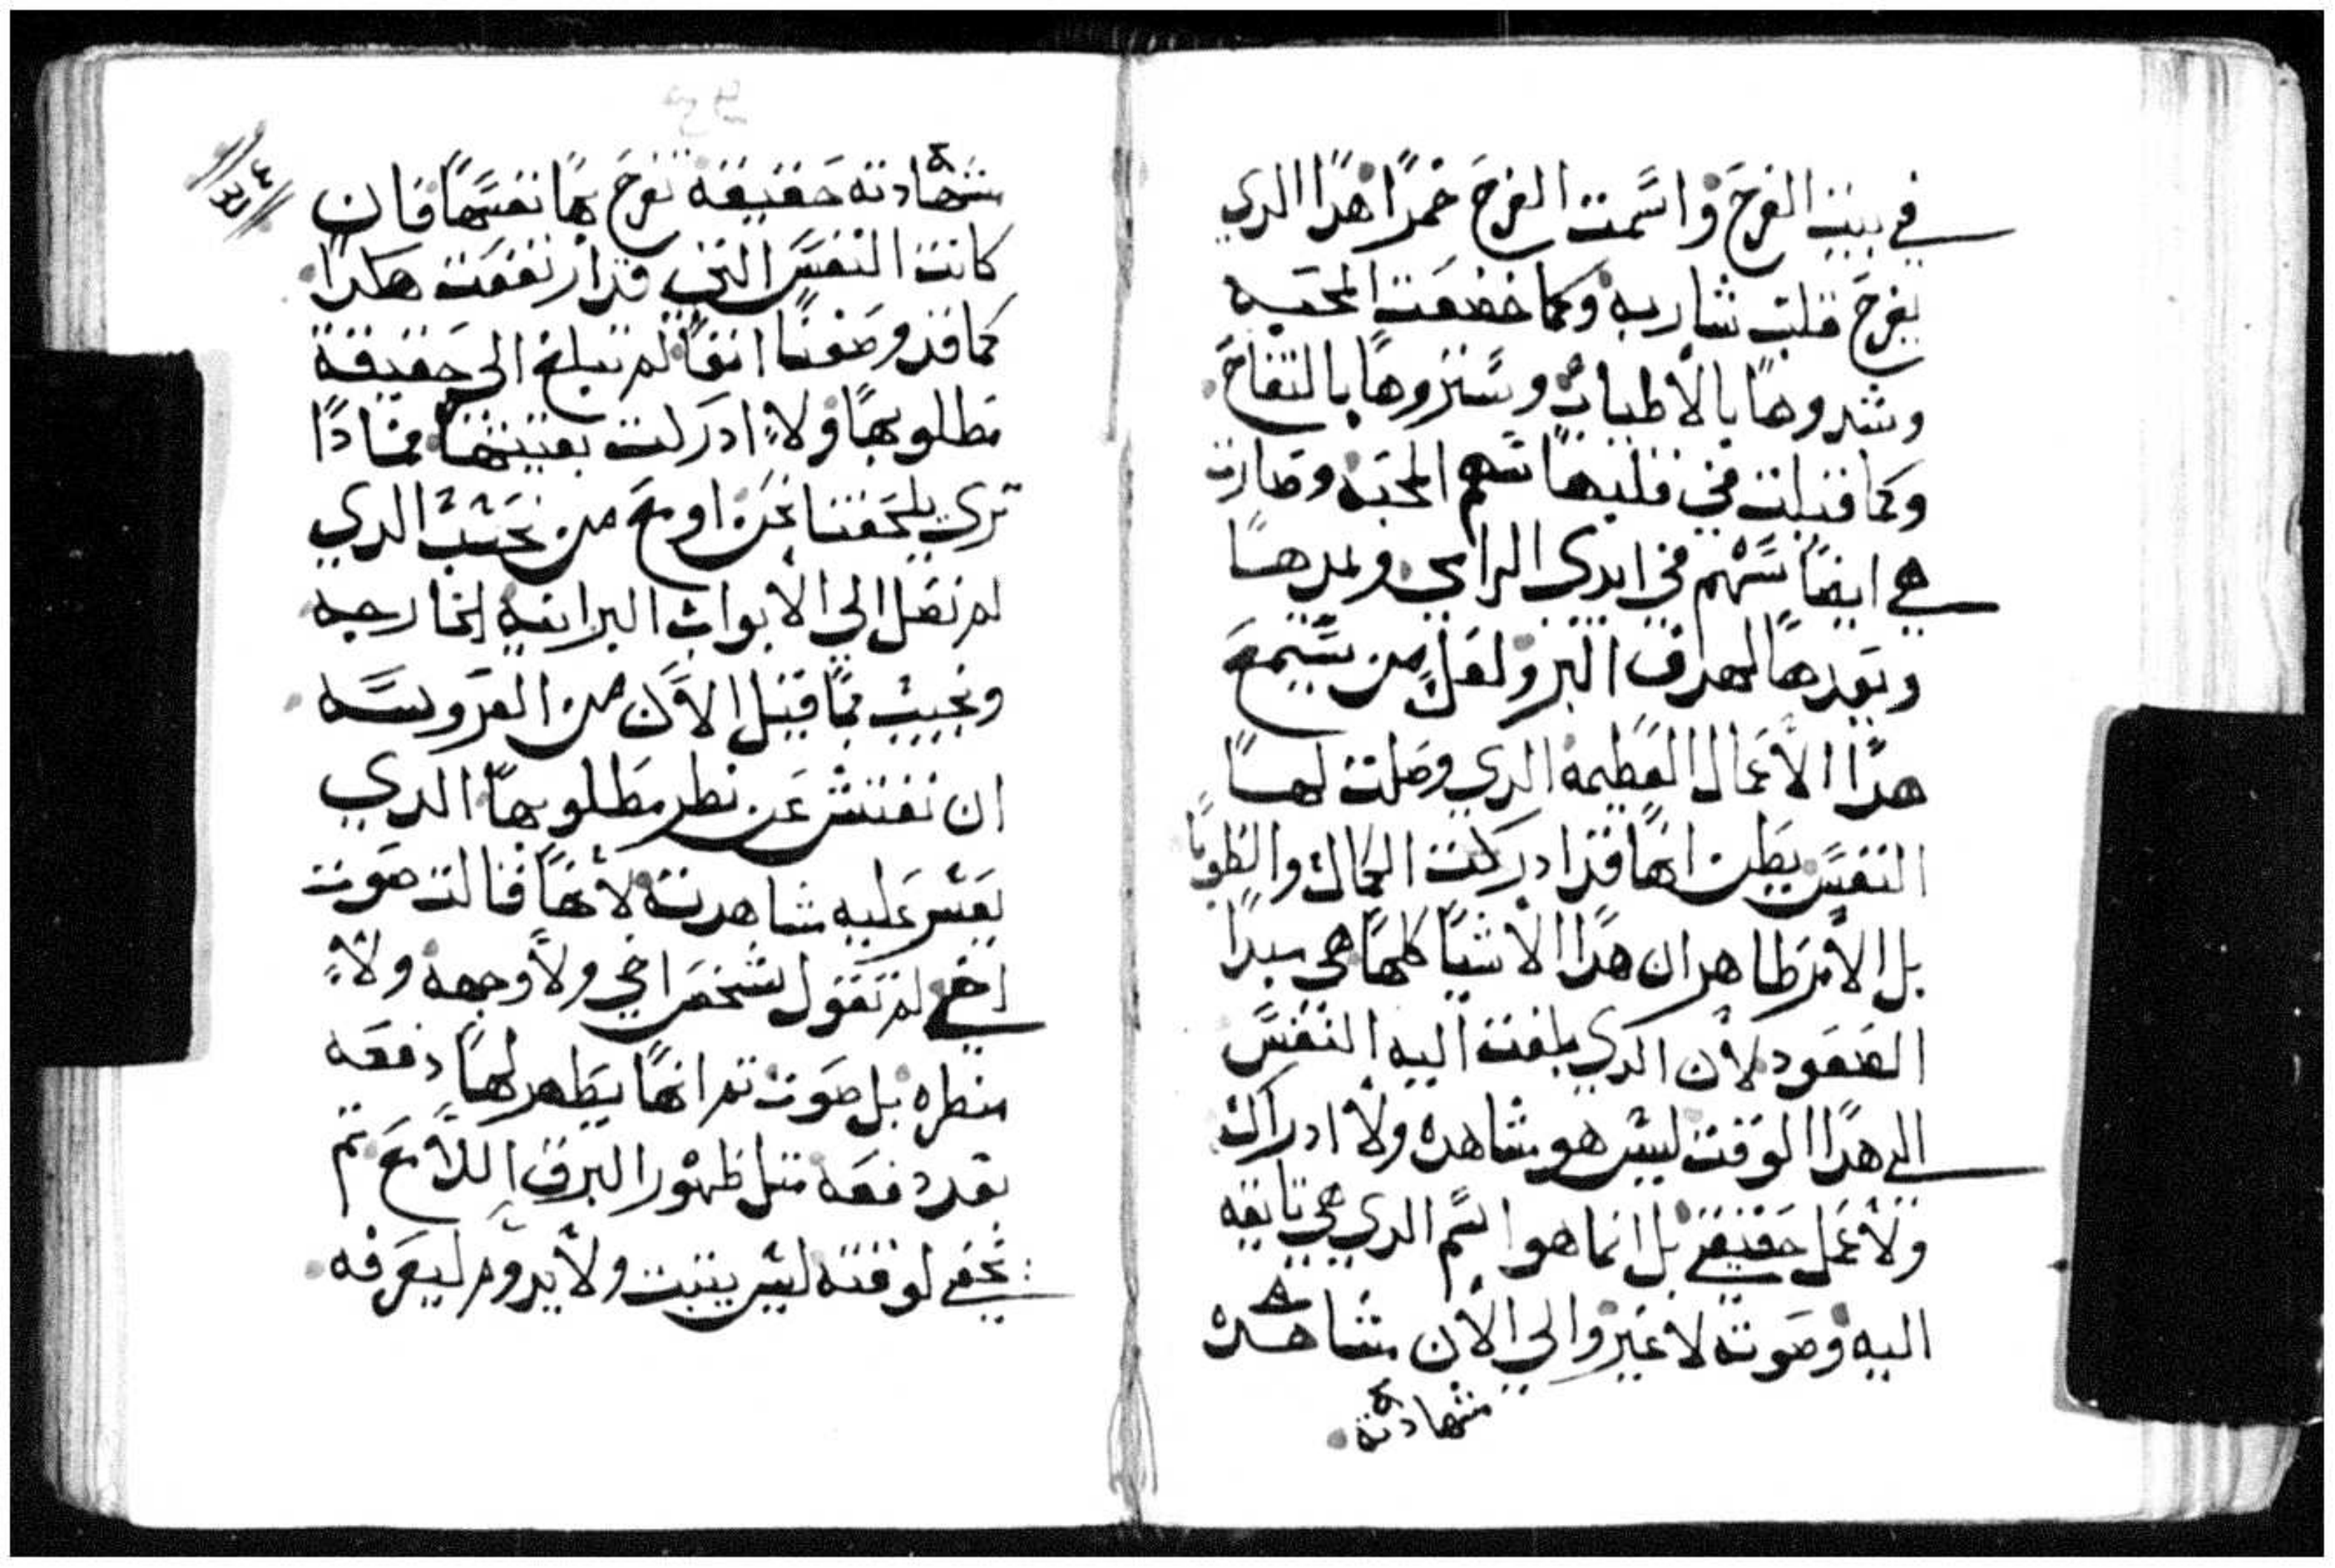 في بيت الفرح واسمت الفرح خمرًا هذا الدي
يفرح قلب شاربه وكما خضعت المحبه
وشدوها بالأطياب وستروها بالتفاح
وكما قبلت في قلبها سهم المحبه وصارت
هي ايضًا سهم في ايدي الرامي ويمدها
ويعدها لهدف البر ولعل من يسمع
هدا الأعمال العظيمه الدي وصلت لها
النفس يظن انها قد ادركت الكمال والطوبا
بل الأمر ظاهر ان هدا الأشيا كلها هي مبدا
الصعود لأن الدي بلغت اليه النفس
الى هدا الوقت ليس هو مشاهده ولا ادراك
ولا عمل حقيقي بل انما هو اسم الدي هي تايقه
اليه وصوته لا غير والي الأن مشاهده
شهادته
شهادته حقيقه تفرح بها نفسها فان
كانت النفس التي قد ارتفعت هكدا
كما قد وصفنا انفًا لم تبلغ الي حقيقة
مطلوبها ولا ادركت بغيتها فمادا
تري يلحقنا نحن اوجع من نحيب الدي
لم نصل الي الأبواب البرانيه الخارجيه
ونجيب بما قيل الأن من العروسه
ان نفتش عن نظر مطلوبها الدي
يعسر عليه مشاهدته لأنها قالت صوت
اخي لم تقول شخص اخي ولا وجهه ولا
منظره بل صوت تم انها يظهر لها دفعه
بعد دفعه متل ظهور البرق اللامع تم
يخفي لوقته ليس يتبت ولا يدوم ليعرفه